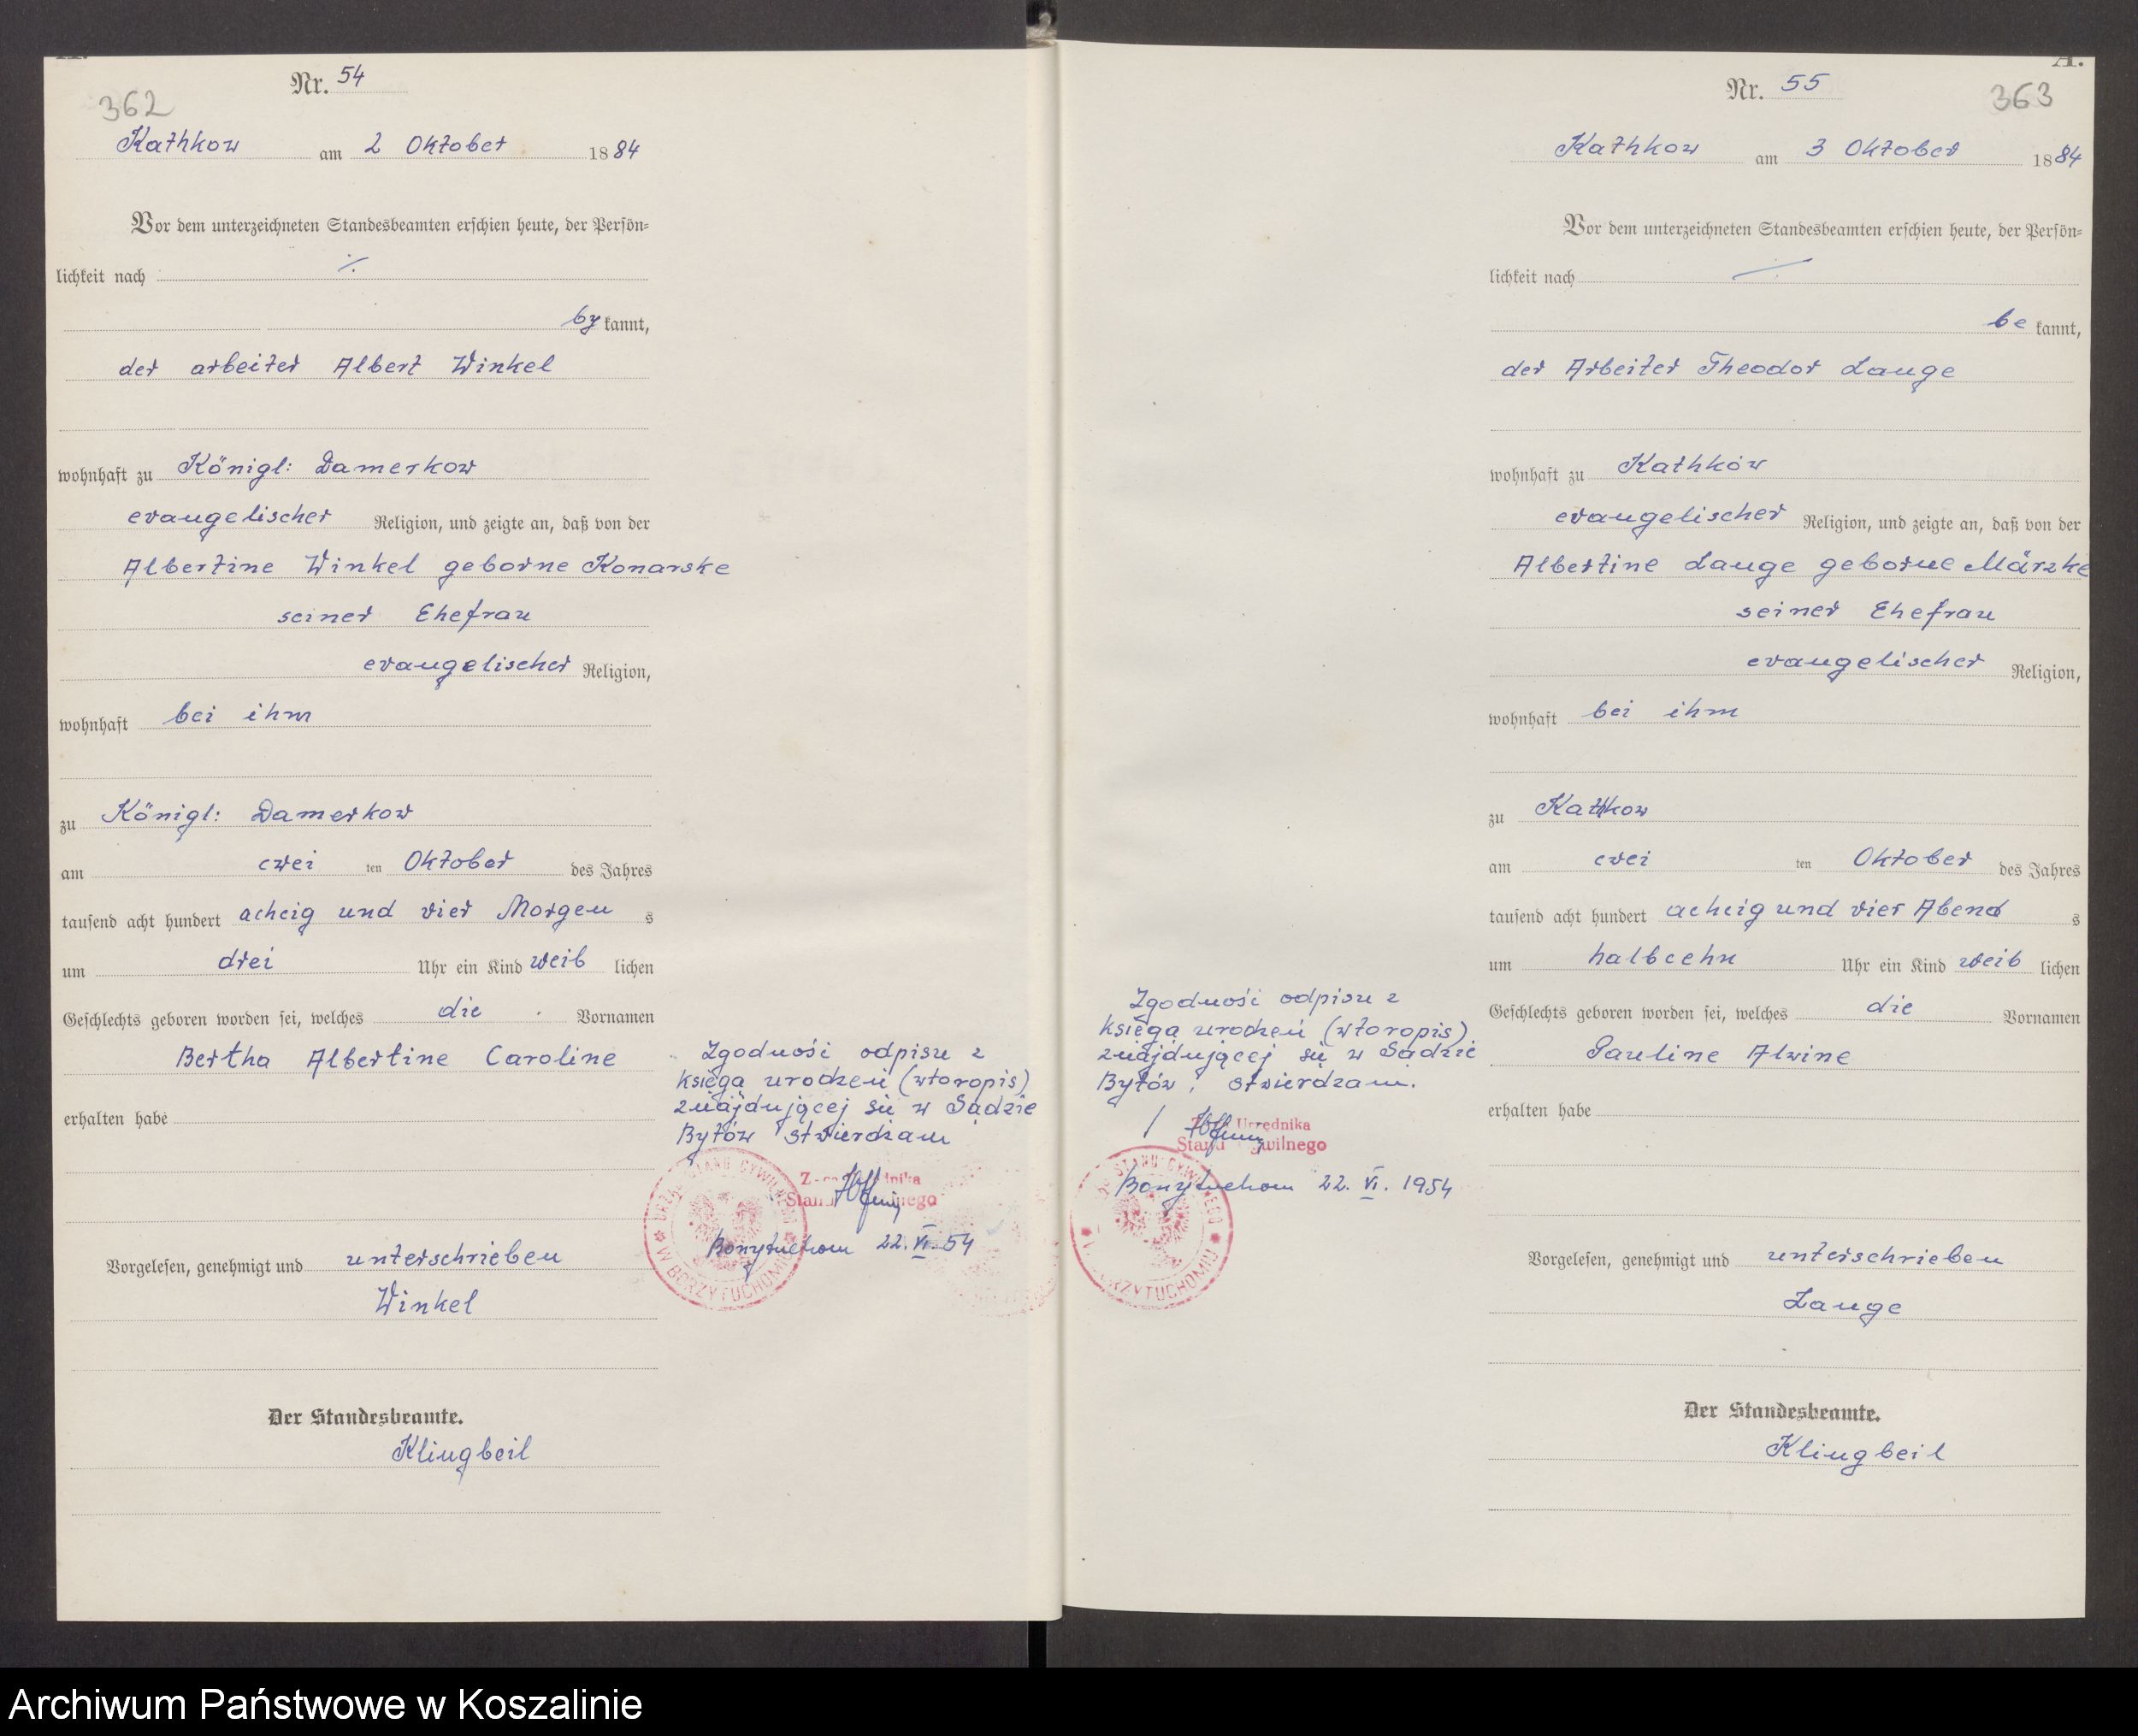 Nr. 54
362
Kathkow am 2 Oktober 1884
Vor dem unterzeichneten Standesbeamten erschien heute, der Persön-
lichkeit nach
kannt,
der arbeiter Albert Winkel
wohnhaft zu Königl: Damerkow
evangelischer Religion, und zeigte an, daß von der
Albertine Winkel geborne Konarske
seiner Ehefrau
evangelischer Religion,
wohnhaft bei ihm
zu Königl: Damerkow
am cwei ten Oktober des Jahres
tausend acht hundert achcig und vier Morgen s
um drei Uhr ein Kind weib lichen
Geschlechts geboren worden sei, welches die Vornamen
Bertha Albertine Caroline
erhalten habe
Vorgelesen, genehmigt und unterschrieben
Winkel
Der Standesbeamte.
Klingbeil
Zgodność odpisu z
księgą urodzeń (wtoropis)
znajdującej się w Sądzie
Bytów stwierdzam
Stanu
URZĄD STANU CYWILNEGO
W BORZYTUCHOMIU
22. VI. 54
A.
Nr. 55
363
Kathkow am 3 Oktober 1884
Vor dem unterzeichneten Standesbeamten erschien heute, der Persön-
lichkeit nach
be kannt,
der Arbeiter Theodor Lange
wohnhaft zu Kathkow
evangelischer Religion, und zeigte an, daß von der
Albertine Lange geborne Märzke
seiner Ehefrau
evangelischer Religion,
wohnhaft bei ihm
zu Kathkow
am cvei ten Oktober des Jahres
tausend acht hundert achcig und vier Abend s
um halbcehn Uhr ein Kind weib lichen
Geschlechts geboren worden sei, welches die Vornamen
Pauline Alwine
erhalten habe
Vorgelesen, genehmigt und unterschrieben
Lange
Der Standesbeamte.
Klingbeil
Zgodność odpisu z
księgą urodzeń (wtoropis)
znajdującej się w Sądzie
Bytów, stwierdzam.
Urzędnika
Stanu Cywilnego
22. VI. 1954
Archiwum Państwowe w Koszalinie